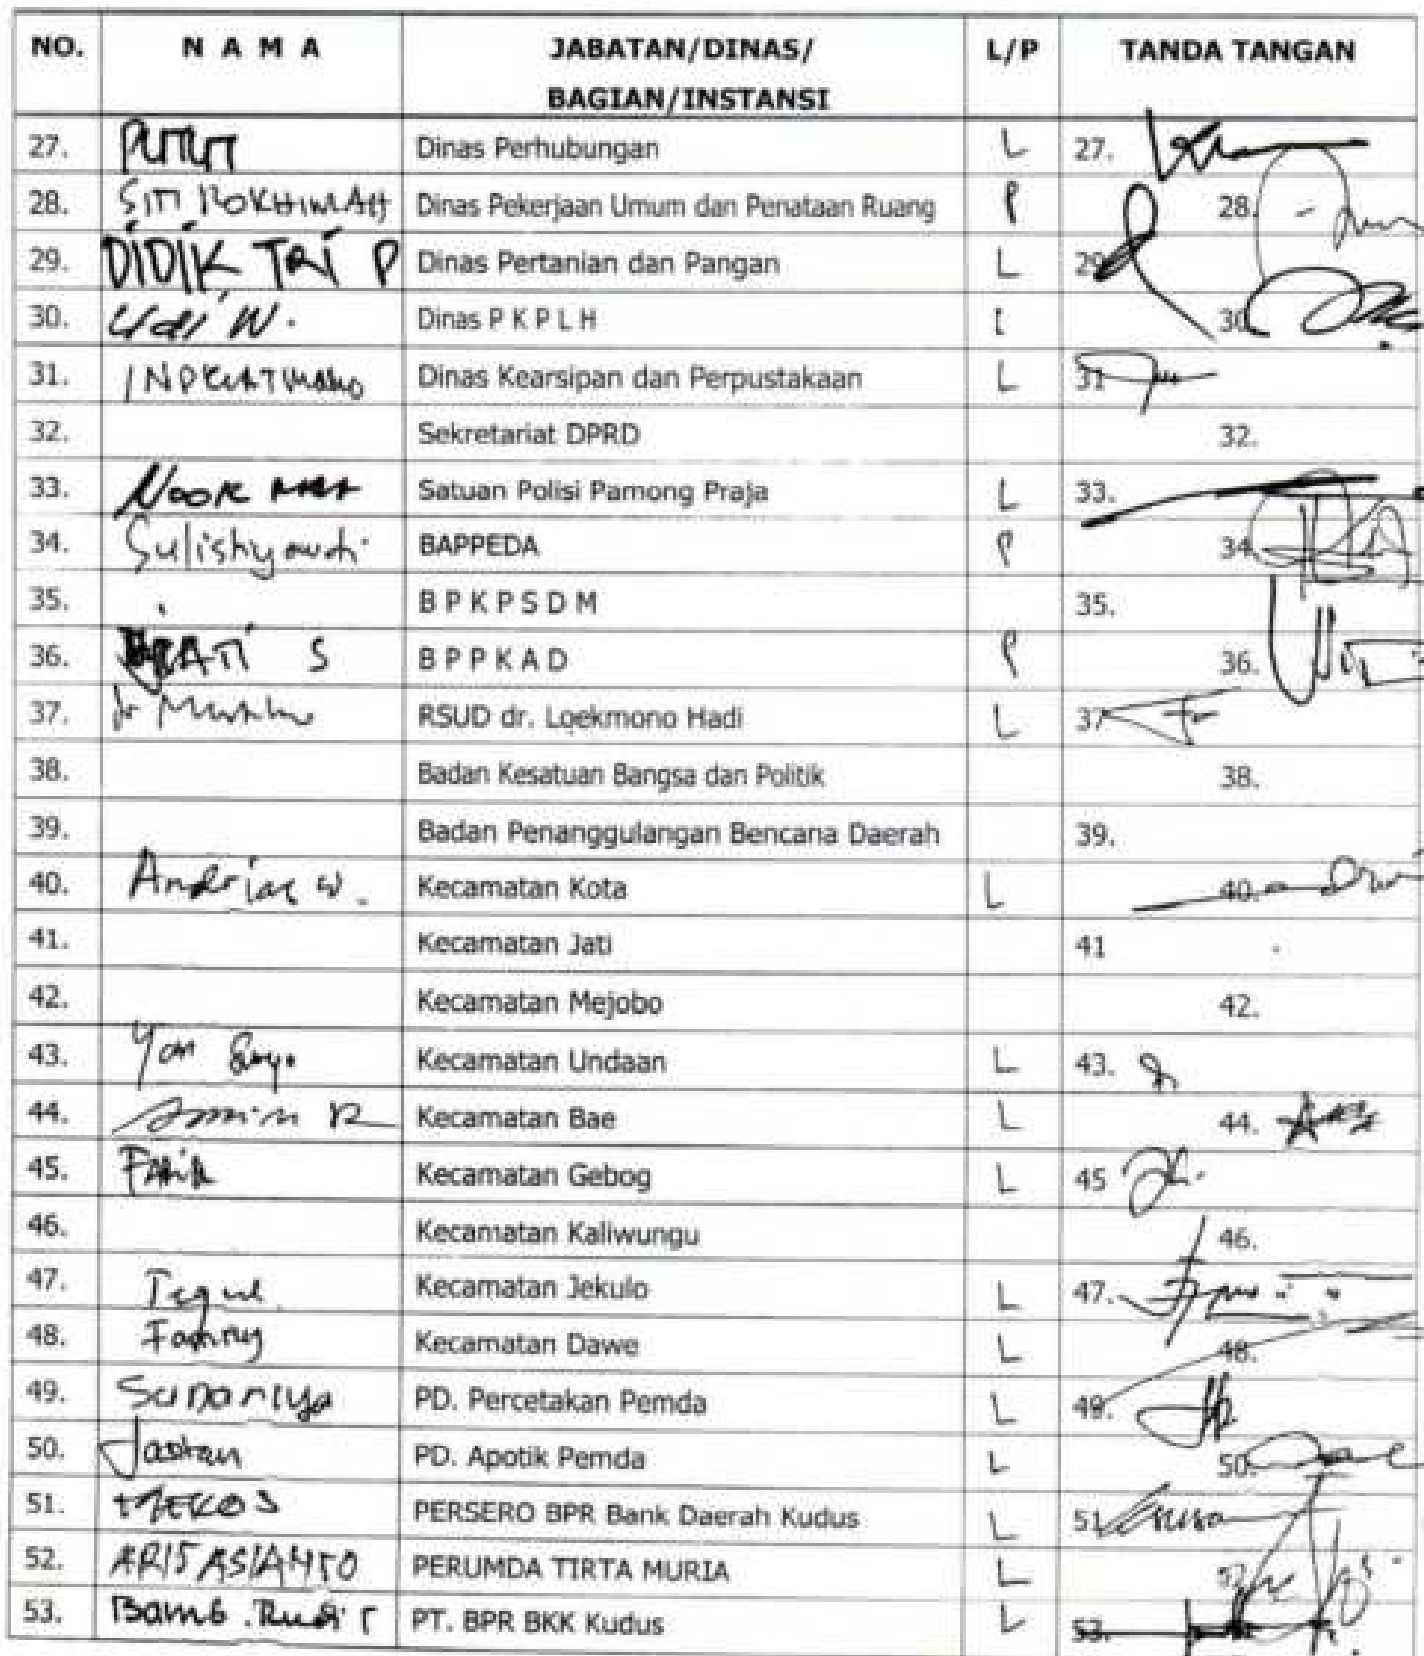 NO. N A M A JABATAN/DINAS/ L/P TANDA TANGAN
BAGIAN/INSTANSI
27. Dinas Perhubungan L 27.
28. SITI ROKHIMAH Dinas Pekerjaan Umum dan Penataan Ruang P 28.
29. DIDIK TRI P Dinas Pertanian dan Pangan L 29
30. W. Dinas P K P L H 30
31. Dinas Kearsipan dan Perpustakaan L 31
32. Sekretariat DPRD 32.
33. Noor Satuan Polisi Pamong Praja L 33.
34. Sulistiyowati BAPPEDA P 34
35. B P K P S D M 35.
36. S B P P K A D P 36.
37. dr RSUD dr. Loekmono Hadi L 37
38. Badan Kesatuan Bangsa dan Politik 38.
39. Badan Penanggulangan Bencana Daerah 39.
40. Andrias W. Kecamatan Kota L 40.
41. Kecamatan Jati 41
42. Kecamatan Mejobo 42.
43. Yon Kecamatan Undaan L 43.
44. Amin R Kecamatan Bae L 44.
45. Fatik Kecamatan Gebog L 45
46. Kecamatan Kaliwungu 46.
47. Teguh Kecamatan Jekulo L 47.
48. Fanny Kecamatan Dawe L 48.
49. Sunariya PD. Percetakan Pemda L 49.
50. PD. Apotik Pemda L 50.
51. PERSERO BPR Bank Daerah Kudus L 51
52. PERUMDA TIRTA MURIA L 52
53. Bamb. Rudi T PT. BPR BKK Kudus L 53.